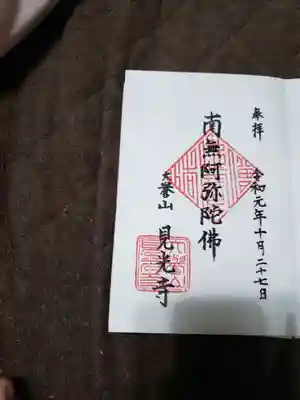 奉拝
令和元年十月二十七日
南無阿弥陀佛
大誉山 見光寺